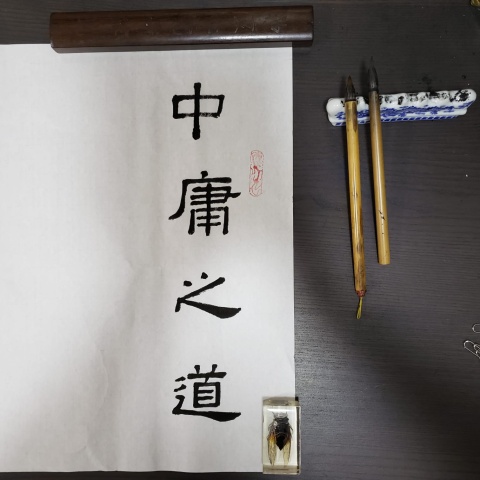 中庸之道